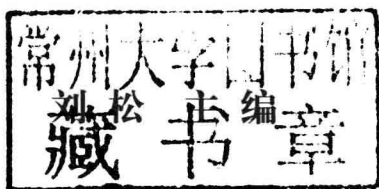 常州大学图书馆
刘松 主编
藏书章